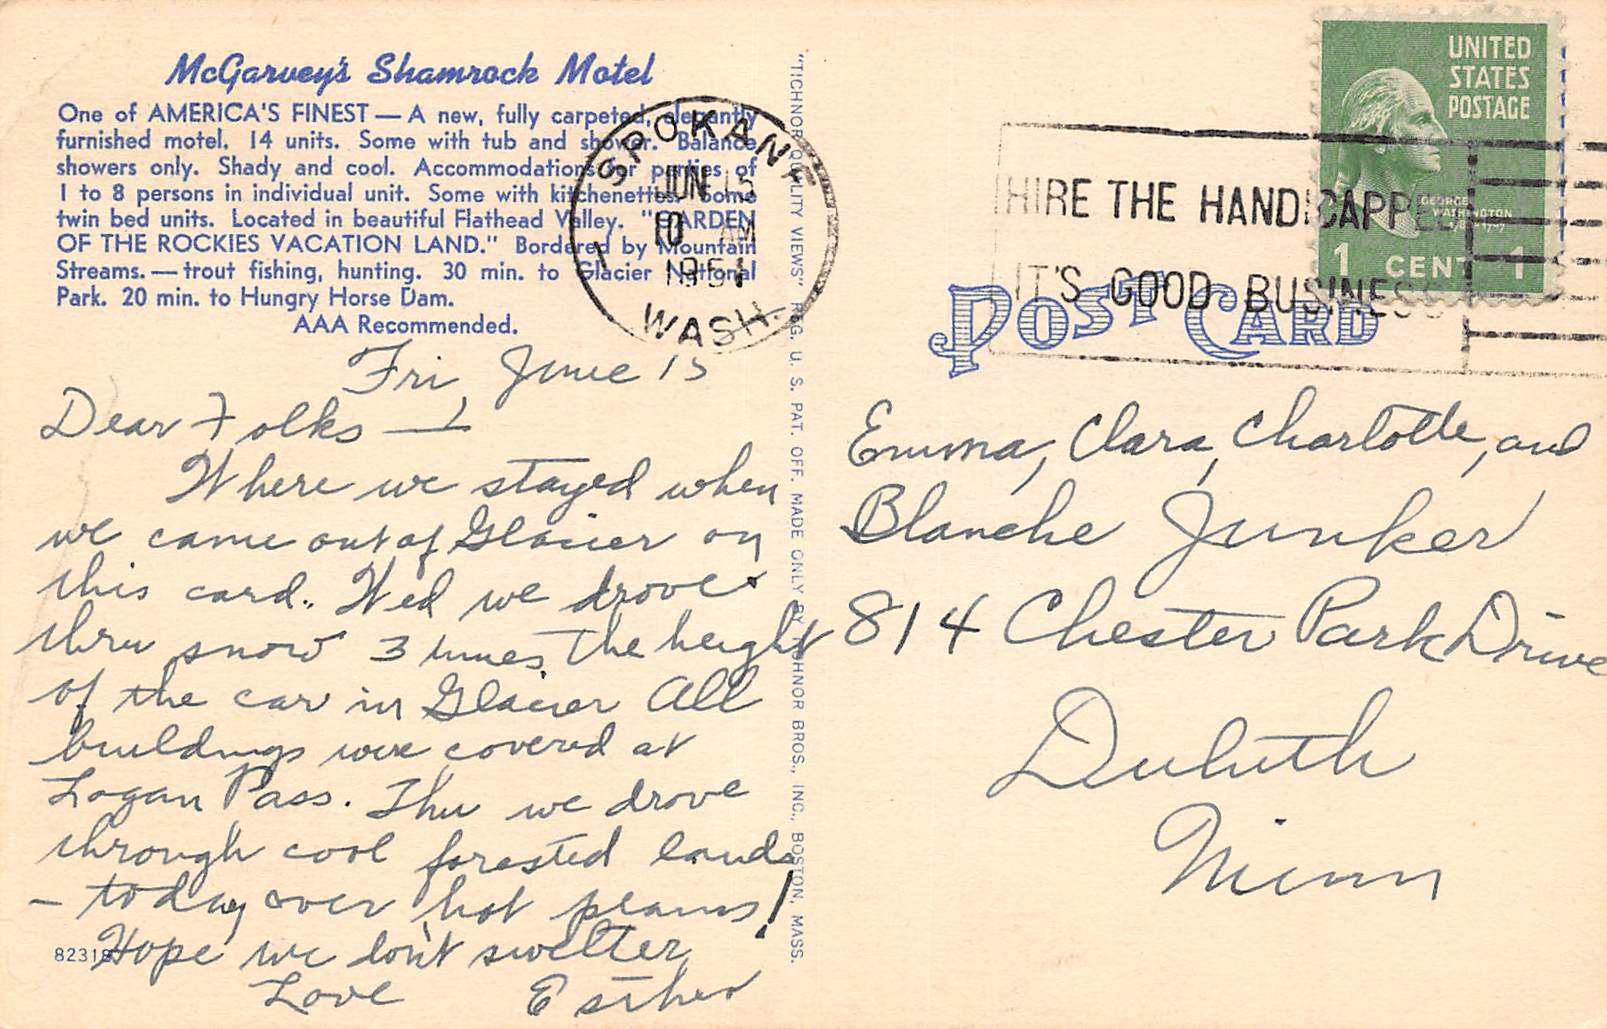 McGarvey's Shamrock Motel
One of AMERICA'S FINEST — A new, fully carpeted, elegantly
furnished motel. 14 units. Some with tub and shower. Balance
showers only. Shady and cool. Accommodations for parties of
1 to 8 persons in individual unit. Some with kitchenettes. Some
twin bed units. Located in beautiful Flathead Valley. "GARDEN
OF THE ROCKIES VACATION LAND." Bordered by Mountain
Streams. — trout fishing, hunting. 30 min. to Glacier National
Park. 20 min. to Hungry Horse Dam.
AAA Recommended.
SPOKANE
JUN 15
10 AM
1951
WASH.
Fri, June 15
Dear Folks —
Where we stayed when
we came out of Glacier on
this card. Wed we drove
thru snow 3 times the height
of the car in Glacier All
buildings were covered at
Logan Pass. Thu we drove
through cool forested lands
- today over hot plains!
Hope we don't swelter
Love Esther
82318
"TICHNOR QUALITY VIEWS" REG. U. S. PAT. OFF. MADE ONLY BY TICHNOR BROS., INC., BOSTON, MASS.
UNITED
STATES
POSTAGE
GEORGE
WASHINGTON
1 CENT 1
HIRE THE HANDICAPPED
IT'S GOOD BUSINESS
POST CARD
Emma, Clara, Charlotte, and
Blanche Junker
814 Chester Park Drive
Duluth
Minn